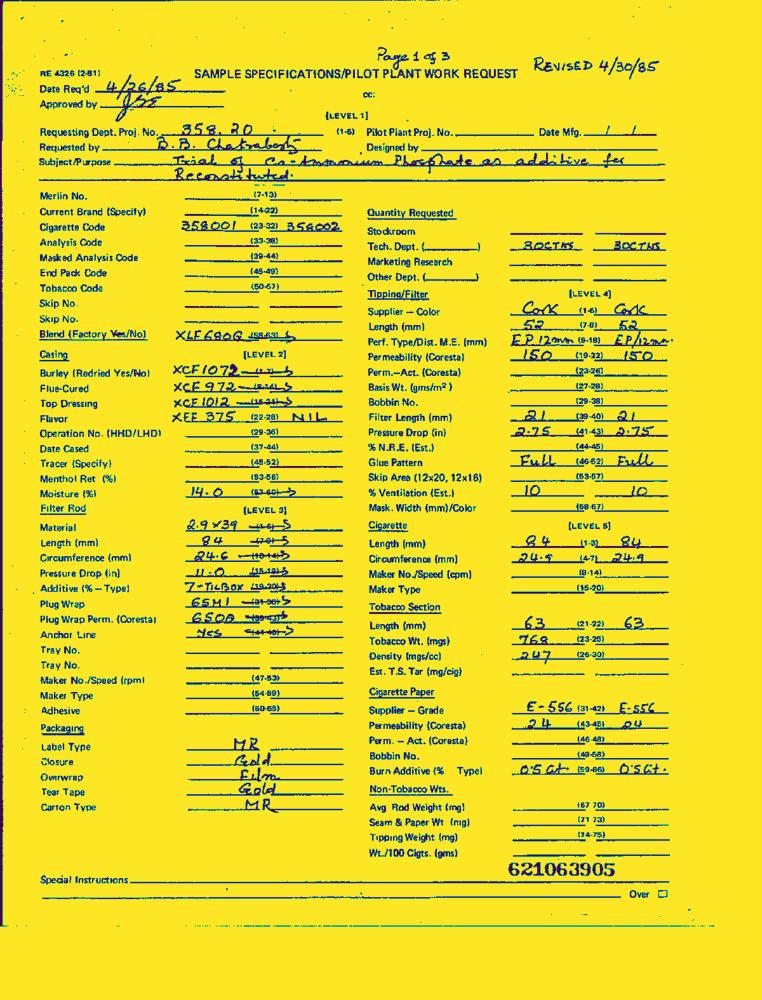 Page 1 of 3
REVISED 4/30/85
RE 4326 (2-81)
SAMPLE SPECIFICATIONS/PILOT PLANT WORK REQUEST
Date Req'd 4/26/85
cc:
Approved by
[LEVEL 1]
Requesting Dept. Proj. No. 358.20 (1-6) Pilot Plant Proj. No. Date Mfg. / /
Requested by B.B. Chakraborty Designed by
Subject/Purpose Trial of Ca-Ammonium Phosphate as additive for
Reconstituted.
Merlin No. (7-13)
Current Brand (Specify) (14-22)
Cigarette Code 358001 (23-32) 358002
Analysis Code (33-38)
Masked Analysis Code (39-44)
End Pack Code (45-49)
Tobacco Code (50-57)
Skip No.
Skip No.
Blend (Factory Yes/No) XLF680G (58-63)
Casing [LEVEL 2]
Burley (Redried Yes/No) XCF1072 (1-7)
Flue-Cured XCF 972 (8-14)
Top Dressing XCF1012 (15-21)
Flavor XEF 375 (22-28) NIL
Operation No. (HHD/LHD) (29-36)
Date Cased (37-44)
Tracer (Specify) (45-52)
Menthol Ret (%) (53-56)
Moisture (%) 14.0 (57-60)
Filter Rod [LEVEL 3]
Material 2.9x39 (1-6)
Length (mm) 84 (7-9)
Circumference (mm) 24.6 (10-14)
Pressure Drop (in) 11.0 (15-18)
Additive (% - Type) 7-TILBOX (19-30)
Plug Wrap 65M1 (31-38)
Plug Wrap Perm. (Coresta) 650A (39-43)
Anchor Line Yes (44-46)
Tray No.
Tray No.
Maker No./Speed (rpm) (47-53)
Maker Type (54-59)
Adhesive (60-65)
Packaging
Label Type MR
Closure Gold
Overwrap Film
Tear Tape Gold
Carton Type MR
Quantity Requested
Stockroom
Tech. Dept. ( ) 30CTNS 30CTNS
Marketing Research
Other Dept. ( )
Tipping/Filter [LEVEL 4]
Supplier - Color Cork (1-6) Cork
Length (mm) 52 (7-8) 52
Perf. Type/Dist. M.E. (mm) EP 12mm (9-18) EP/12mm.
Permeability (Coresta) 150 (19-22) 150
Perm.-Act. (Coresta) (23-26)
Basis Wt. (gms/m²) (27-28)
Bobbin No. (29-38)
Filter Length (mm) 21 (39-40) 21
Pressure Drop (in) 2.75 (41-43) 2.75
% N.R.E. (Est.) (44-45)
Glue Pattern Full (46-52) Full
Skip Area (12x20, 12x16) (53-57)
% Ventilation (Est.) 10 10
Mask. Width (mm)/Color (58-67)
Cigarette [LEVEL 5]
Length (mm) 84 (1-3) 84
Circumference (mm) 24.9 (4-7) 24.9
Maker No./Speed (cpm) (8-14)
Maker Type (15-20)
Tobacco Section
Length (mm) 63 (21-22) 63
Tobacco Wt. (mgs) 768 (23-25)
Density (mgs/cc) 247 (26-30)
Est. T.S. Tar (mg/cig)
Cigarette Paper
Supplier - Grade E-556 (31-42) E-556
Permeability (Coresta) 24 (43-45) 24
Perm. - Act. (Coresta) (46-48)
Bobbin No. (49-58)
Burn Additive (% Type) 0.5 Cit. (59-66) 0.5 Cit.
Non-Tobacco Wts.
Avg Rod Weight (mg) (67 70)
Seam & Paper Wt (mg) (71 73)
Tipping Weight (mg) (74-75)
Wt./100 Cigts. (gms)
621063905
Special Instructions
Over